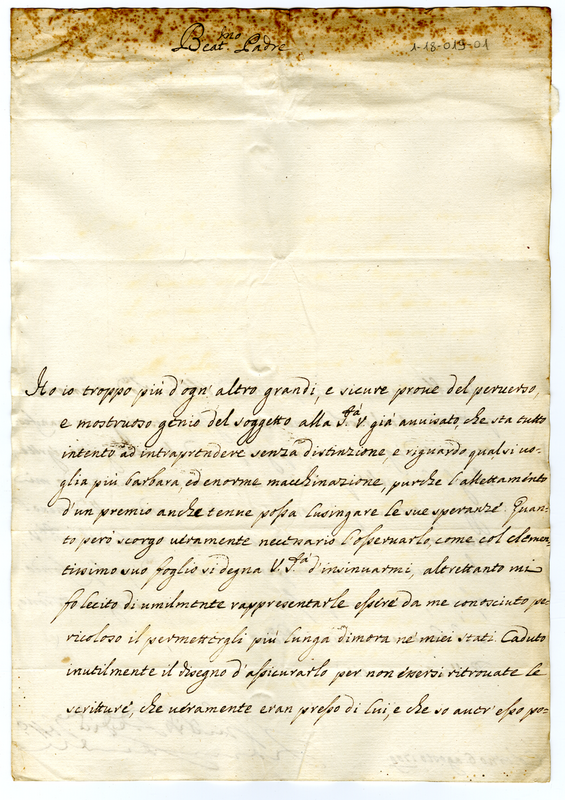 Beat.mo Padre
1-18-019-01
Ho io troppo più d'ogn'altro grandi, e sicure prove del perverso,
e mostruoso genio del soggetto alla S.tà V. già avvisato, che sta tutto
intento ad intraprendere senza distinzione, e riguardo qualsi vo-
glia più barbara, ed enorme macchinazione, purche l'allettamento
d'un premio anche tenue possa lusingare le sue speranze. Quan-
to però scorgo veramente necessario l'osservarlo, come col clemen-
tissimo suo foglio si degna V. S.tà d'insinuarmi, altrettanto mi
fo lecito di umilmente rappresentarle essere da me conosciuto pe-
ricoloso il permettergli più lunga dimora ne miei stati. Caduto
inutilmente il disegno d'assicurarlo per non essersi ritrovate le
scritture, che veramente eran presso di lui, e che so aver' esso po-